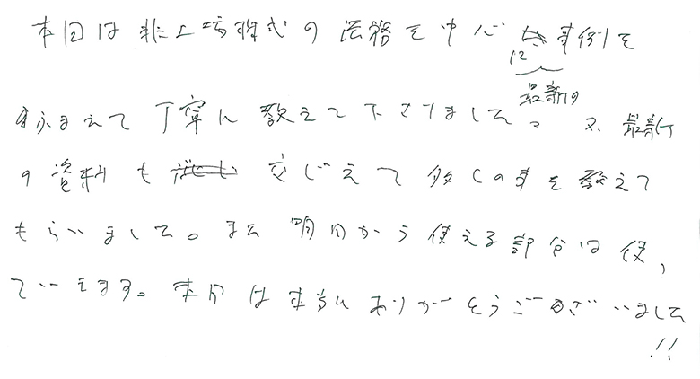 本回は非上場株式の法務を中心に最新の事例を
ふまえて丁寧に教えて下さりました。又、最新
の資料も交じえて多くの事を教えて
もらいました。また明日から使える部分は使っ
ていきます。本日は本当にありがとうございました
!!